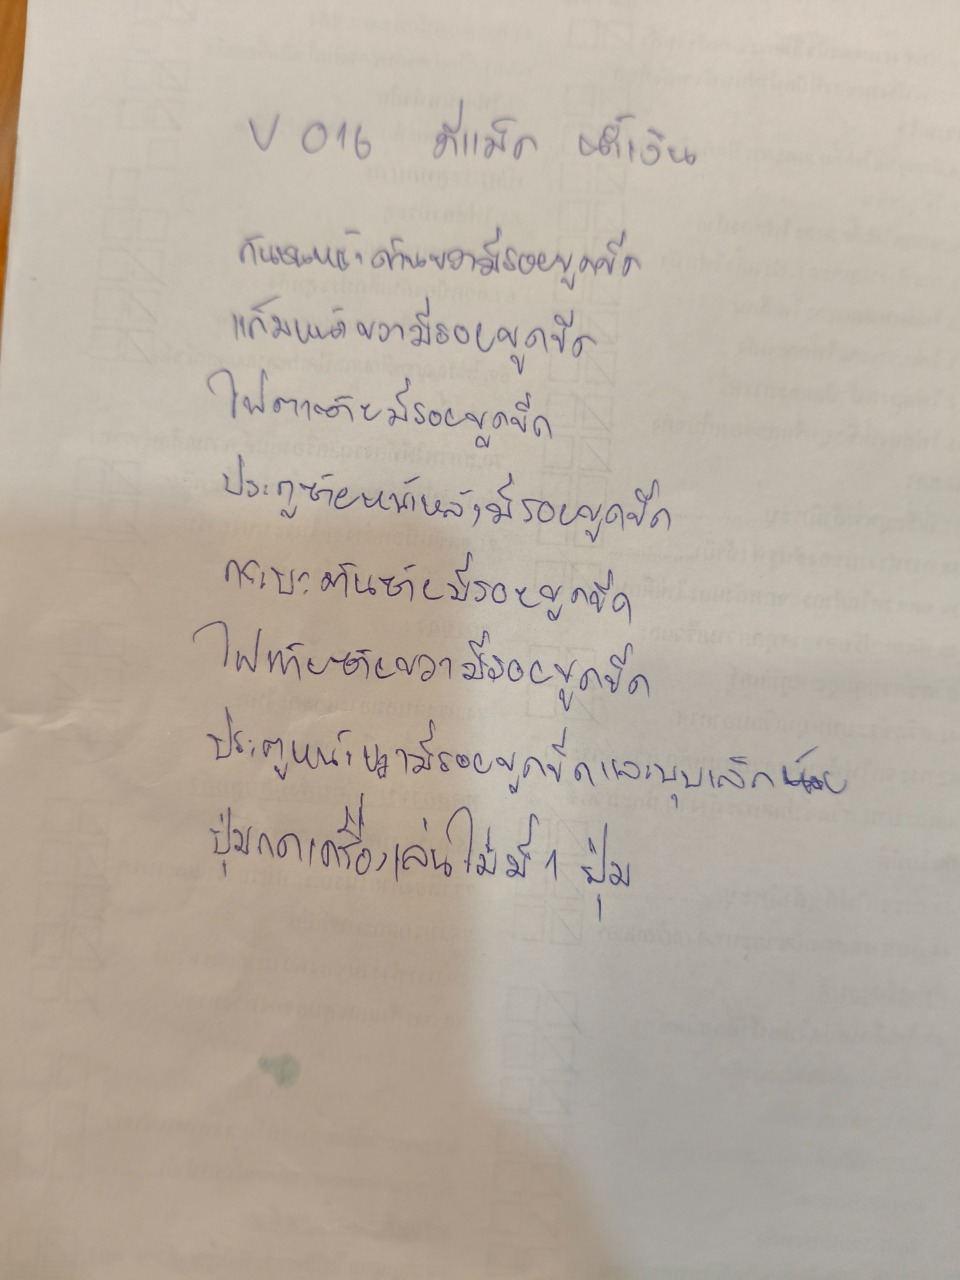 V 016 ดีแม็ค น้ำเงิน
กันชนหน้าด้านขวามีรอยขูดขีด
แก้มหน้าขวามีรอยขูดขีด
ไฟตาซ้ายมีรอยขูดขีด
ประตูซ้ายหน้าหลังมีรอยขูดขีด
กระบะด้านซ้ายมีรอยขูดขีด
ไฟท้ายซ้ายขวามีรอยขูดขีด
ประตูหน้าขวามีรอยขูดขีดและบุบเล็กน้อย
ปุ่มกดเครื่องเล่นไม่มี 1 ปุ่ม